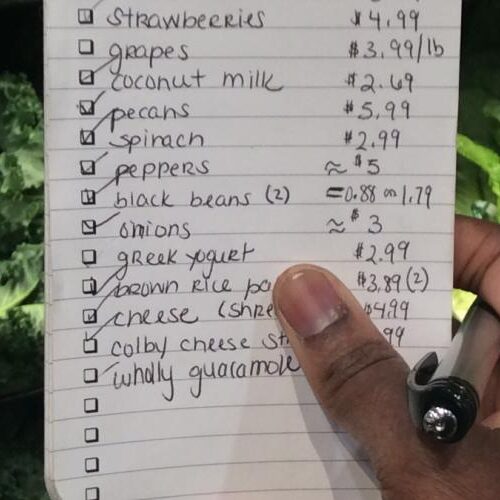 strawberries $4.99
grapes $3.99/lb
coconut milk $2.69
pecans $5.99
spinach $2.99
peppers ≈ $5
black beans (2) = 0.88 on 1.79
onions ≈ $3
greek yogurt $2.99
brown rice pa $3.89 (2)
cheese (shre $4.99
colby cheese st 99
wholly guacamole